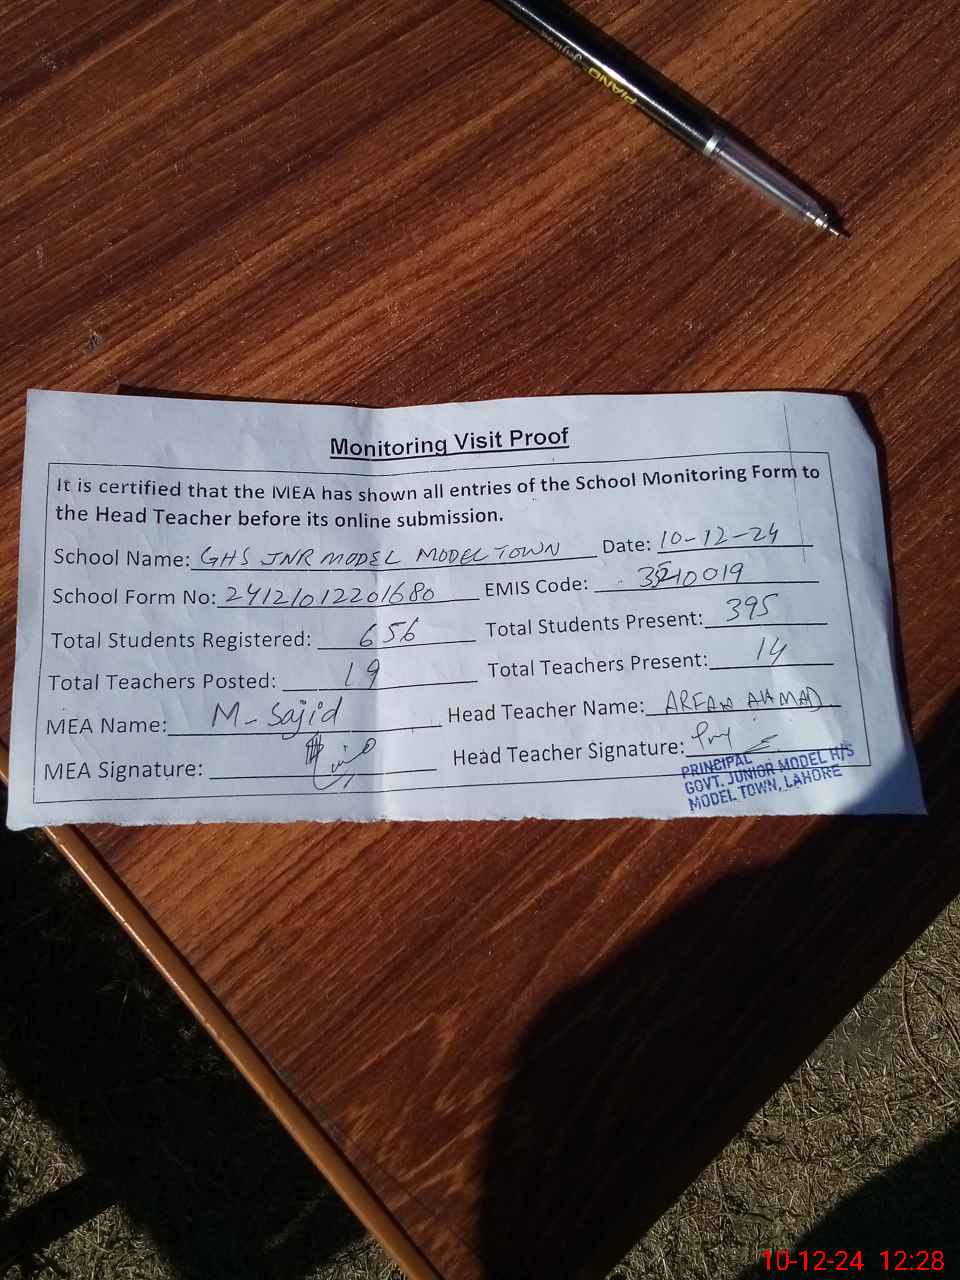 PIANO
Monitoring Visit Proof
It is certified that the MEA has shown all entries of the School Monitoring Form to
the Head Teacher before its online submission.
School Name: GHS JNR MODEL MODEL TOWN Date: 10-12-24
School Form No: 24121012201680 EMIS Code:
Total Students Registered: 656 Total Students Present: 395
Total Teachers Posted: 19 Total Teachers Present: 14
MEA Name: M-Sajid Head Teacher Name: ARFAN AHMAD
MEA Signature: Head Teacher Signature:
PRINCIPAL
GOVT. JUNIOR MODEL H/S
MODEL TOWN, LAHORE
10-12-24 12:28